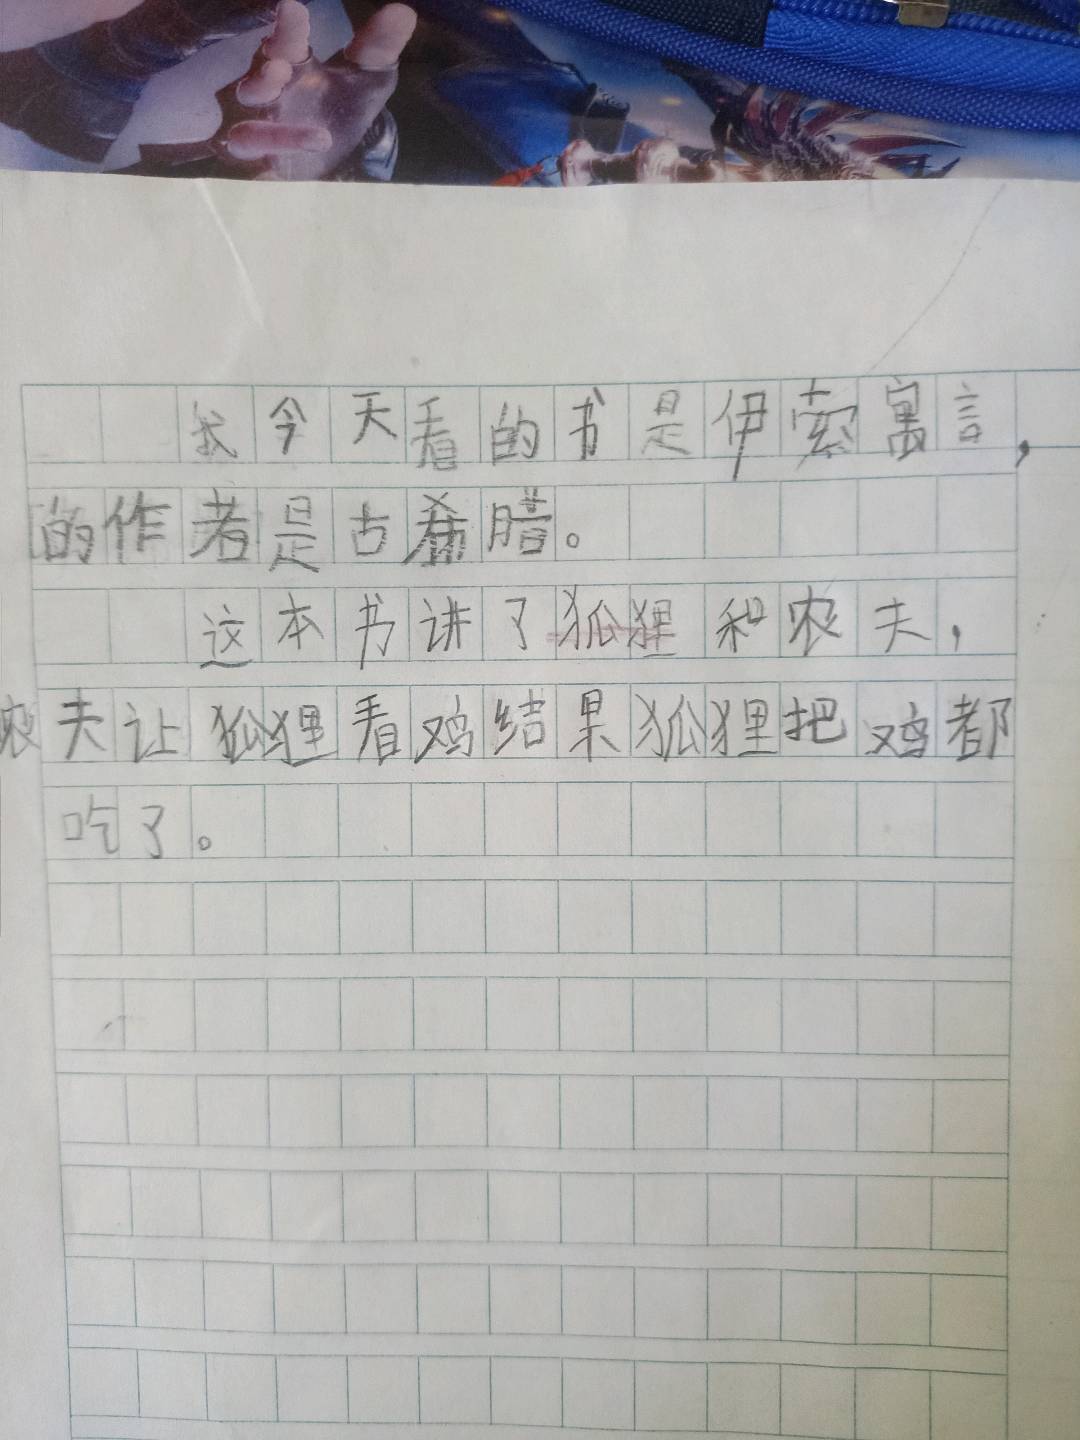 我今天看的书是伊索寓言,
的作者是古希腊。
这本书讲了狐狸和农夫,
农夫让狐狸看鸡结果狐狸把鸡都
吃了。